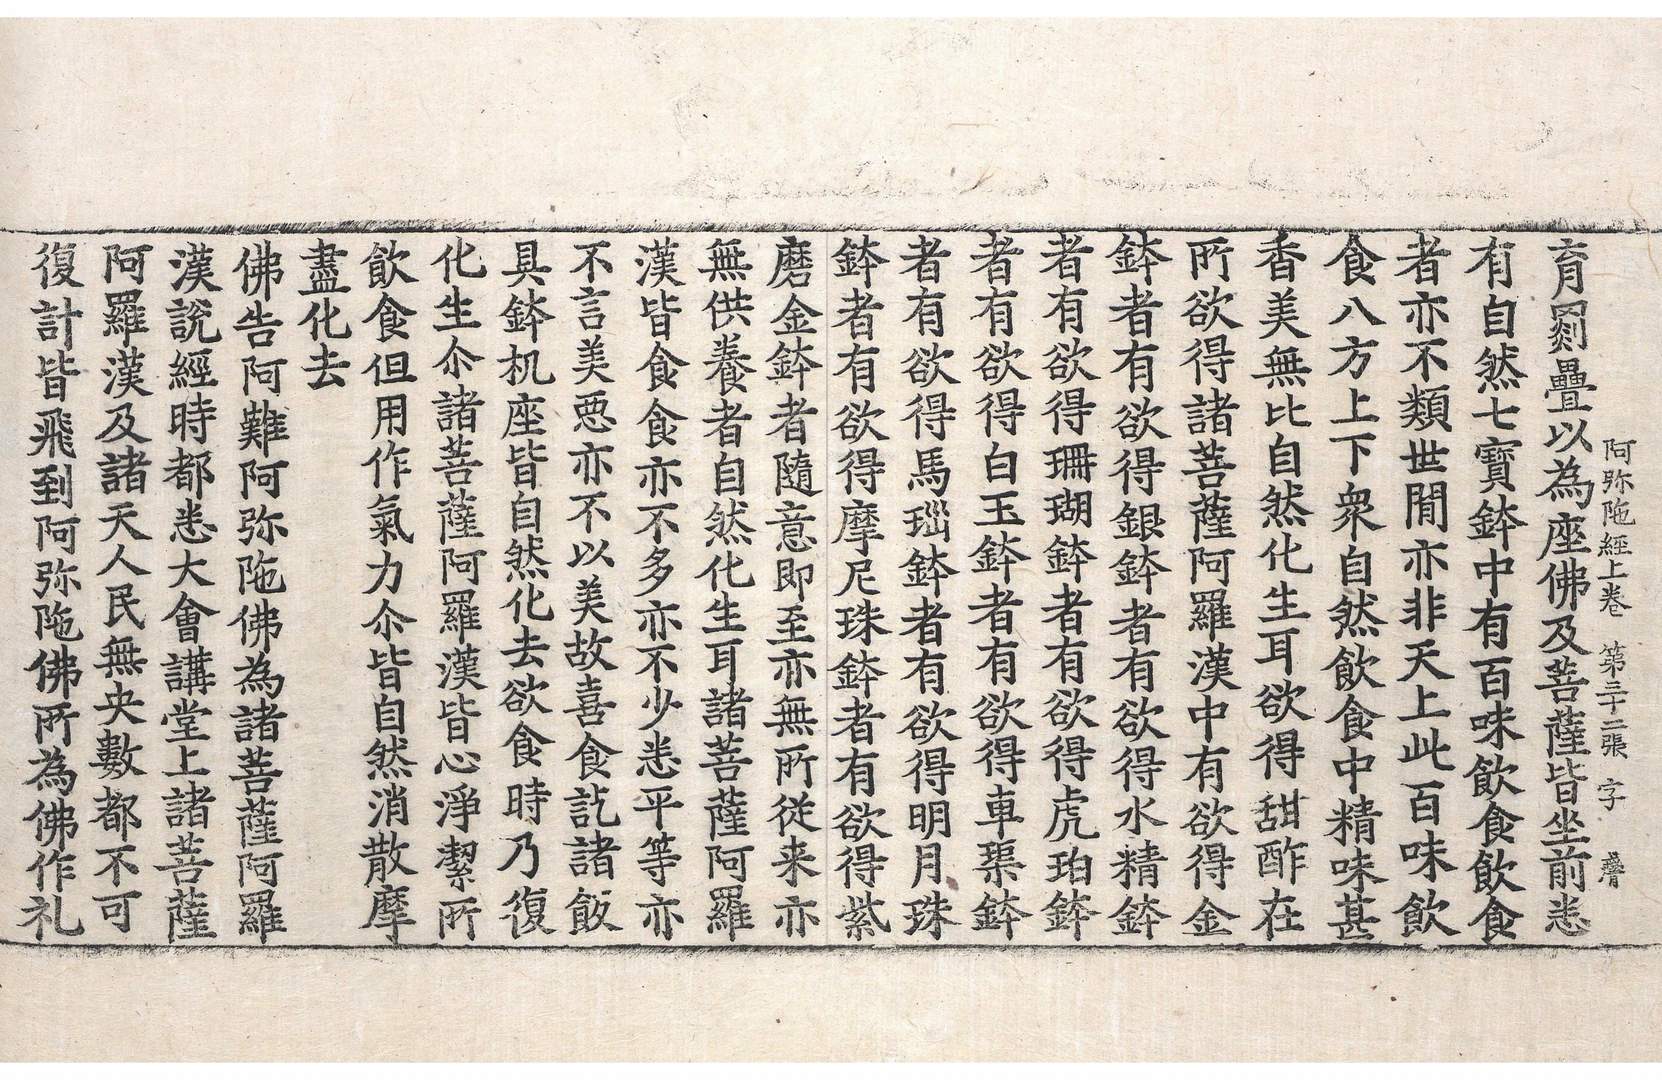 阿弥陁經上卷　第三十二張　字　𧃯
育罽疊以為座佛及菩薩皆坐前悉
有自然七寶鉢中有百味飲食飲食
者亦不類世閒亦非天上此百味飲
食八方上下衆自然飲食中精味甚
香美無比自然化生耳欲得甜酢在
所欲得諸菩薩阿羅漢中有欲得金
鉢者有欲得銀鉢者有欲得水精鉢
者有欲得珊瑚鉢者有欲得虎珀鉢
者有欲得白玉鉢者有欲得車璖鉢
者有欲得馬瑙鉢者有欲得明月珠
鉢者有欲得摩尼珠鉢者有欲得紫
磨金鉢者隨意即至亦無所従来亦
無供養者自然化生耳諸菩薩阿羅
漢皆食食亦不多亦不少悉平等亦
不言美惡亦不以美故喜食訖諸飯
具鉢机座皆自然化去欲食時乃復
化生尒諸菩薩阿羅漢皆心淨潔所
飲食但用作氣力尒皆自然消散摩
盡化去
佛告阿難阿弥陁佛為諸菩薩阿羅
漢說經時都悉大會講堂上諸菩薩
阿羅漢及諸天人民無央數都不可
復計皆飛到阿弥陁佛所為佛作礼